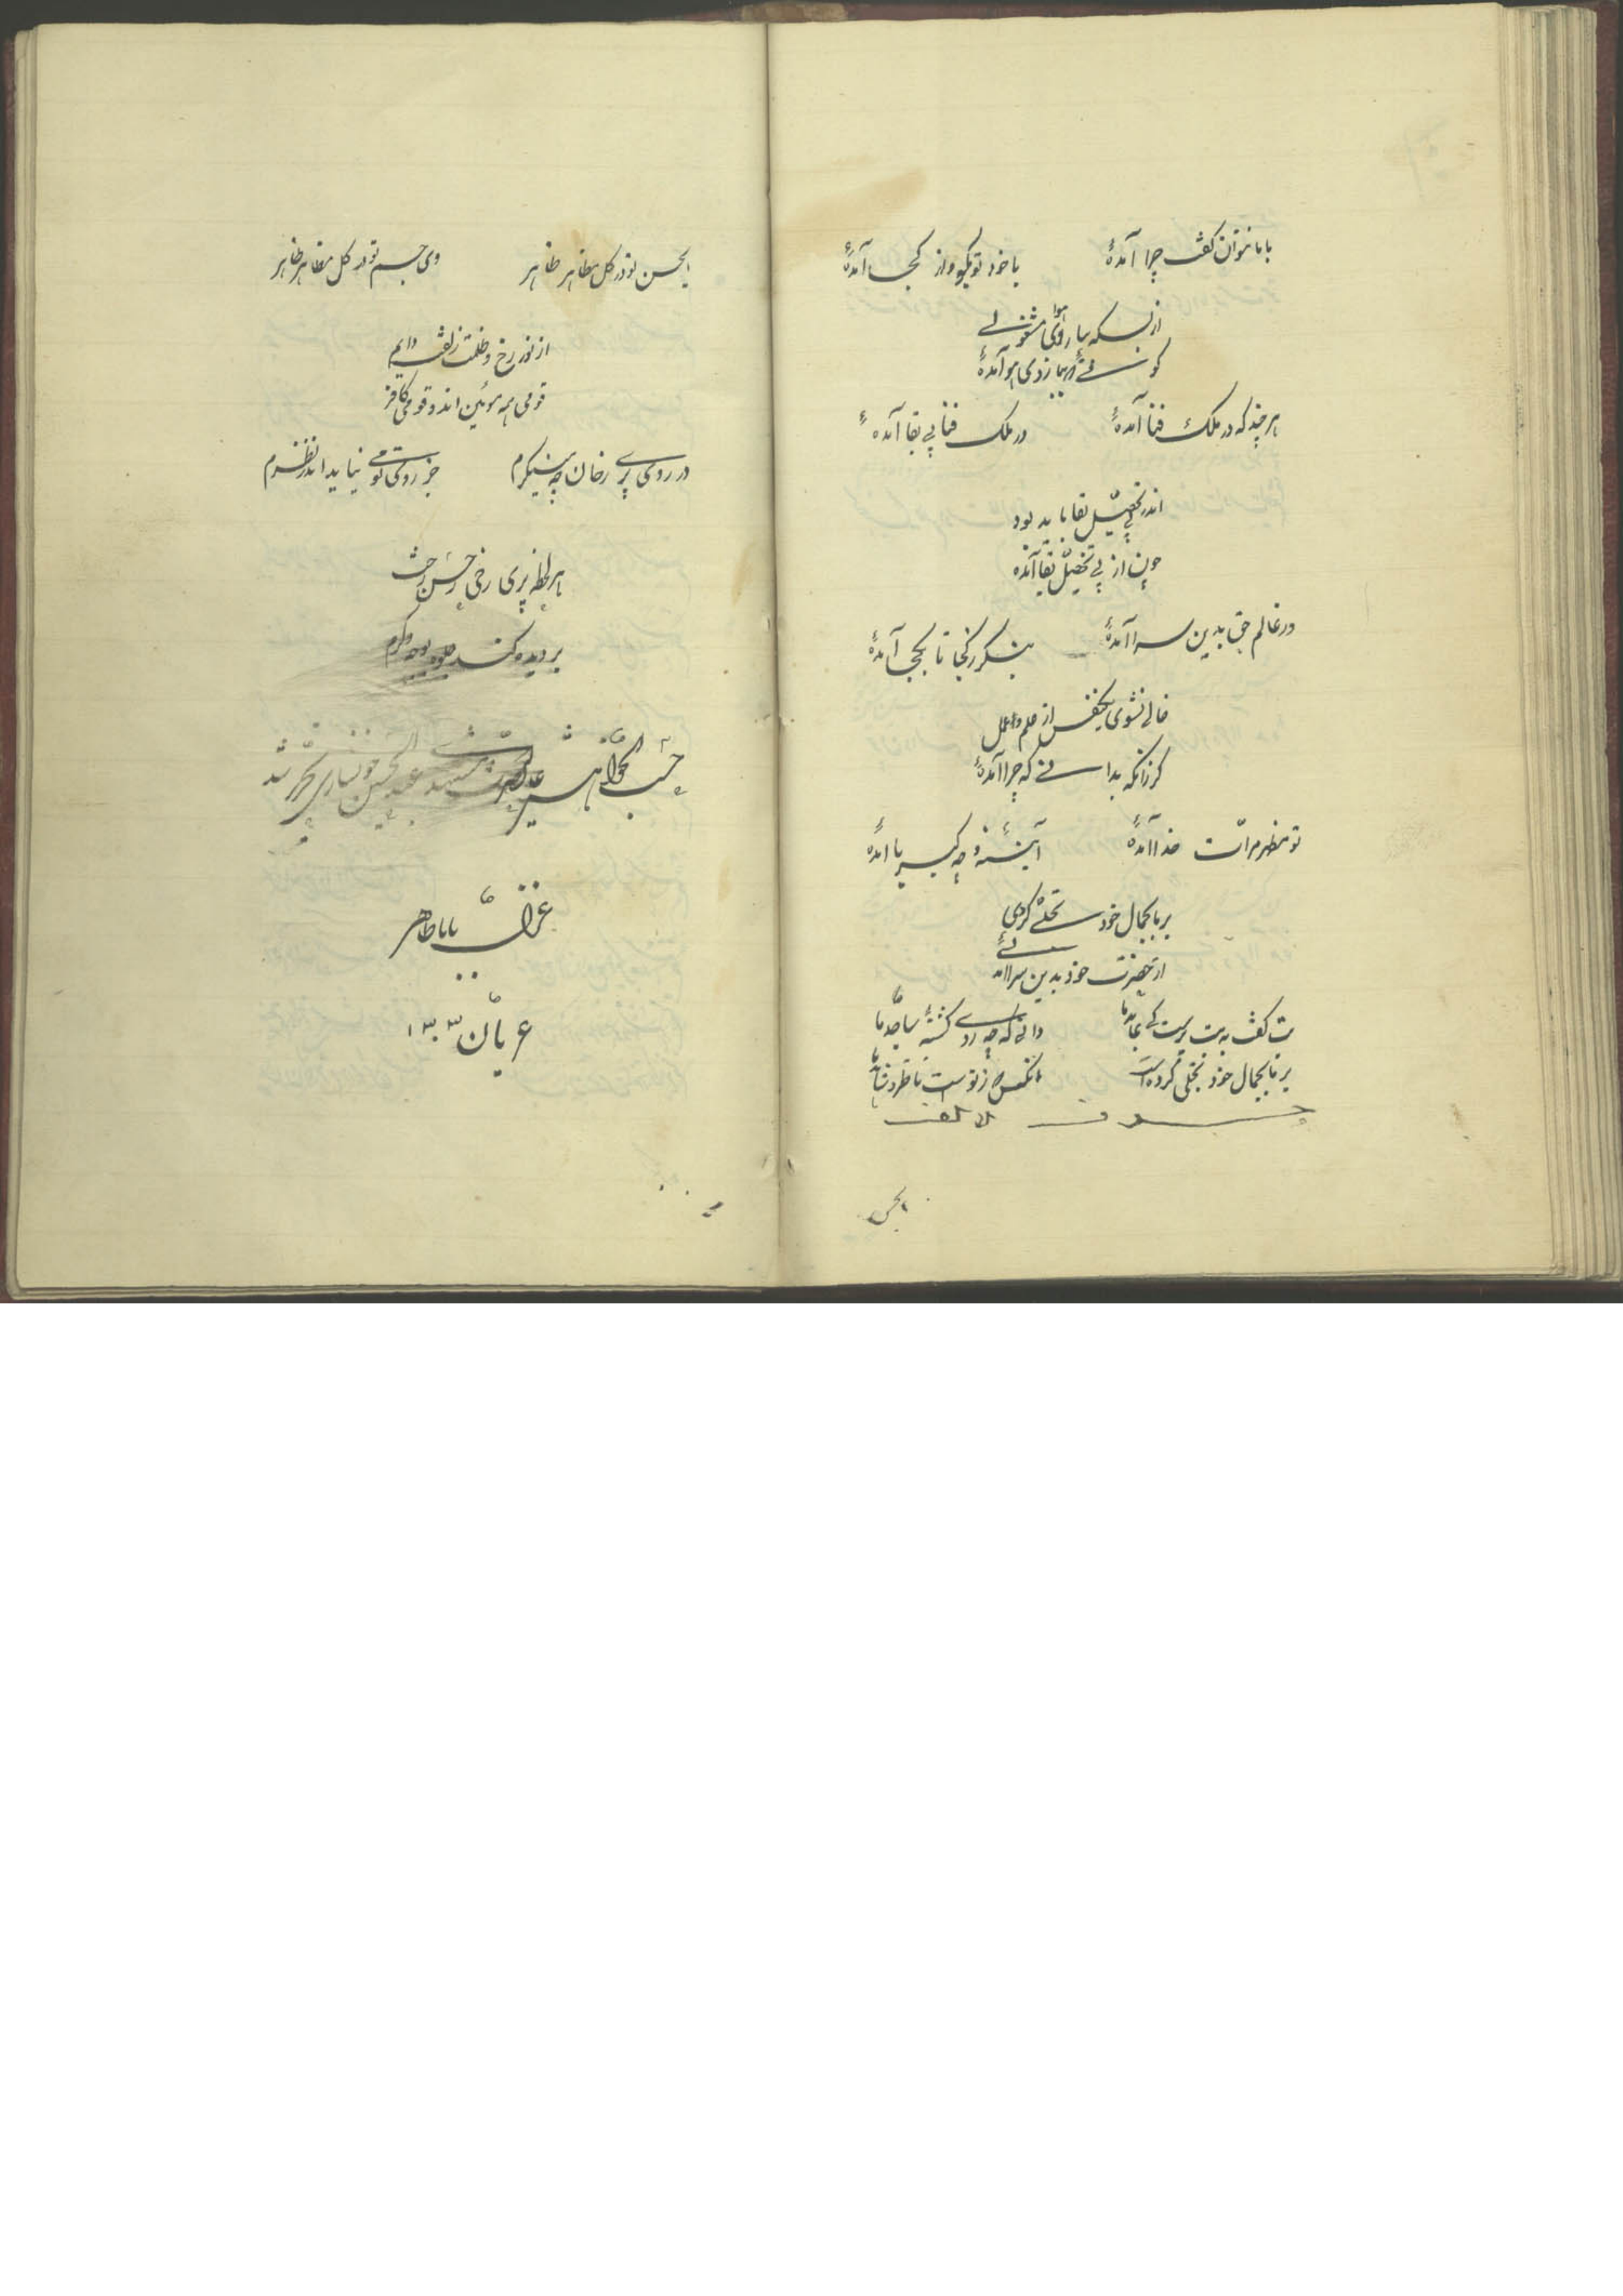 با ما نتوان گفت چرا آمدهٔ
با خود تو بگو و از کجا آمدهٔ
از بسکه بیاروی هوا مشغولی
گوئی تو همه از پی هوا آمدهٔ
هر چند که در ملک فنا آمدهٔ
در ملک فنا پی بقا آمدهٔ
اندر پی تحصیل بقا باید بود
چون از پی تحصیل بقا آمدهٔ
در عالم حق بدین سرا آمدهٔ
بنگر ز کجا تا بکجا آمدهٔ
خالی نشوی یکنفس از علم و عمل
گر زانکه بدانی که چرا آمدهٔ
تو مظهر مرآت خدا آمدهٔ
آئینهٔ وجه کبریا آمدهٔ
بر ما بجمال خود تجلی کردی
از حضرت خود بدین سرا آمدهٔ
بت گفت به بت پرست کای عابد ما
دانی که چه روی گشتهٔ ساجد ما
بر ما بجمال خود تجلی کرده است
آنکس که ز توست ناظر و شاهد ما
ایحسن
ایحسن تو در کل مظاهر ظاهر
وی چشم تو در کل مظاهر ناظر
از نور رخ و ظلمت زلفت دایم
قومی همه مؤمن اند و قومی کافر
در روی پری رخان چو مینگرم
جز روی تو می نیاید اندر نظرم
هر لحظه پری رخی ز حسن رخت
بر دیده کند جلوه بوجه دگرم
حسب الخواهش
تحریر شد
غزل بابا طاهر
عریان ۱۳۳